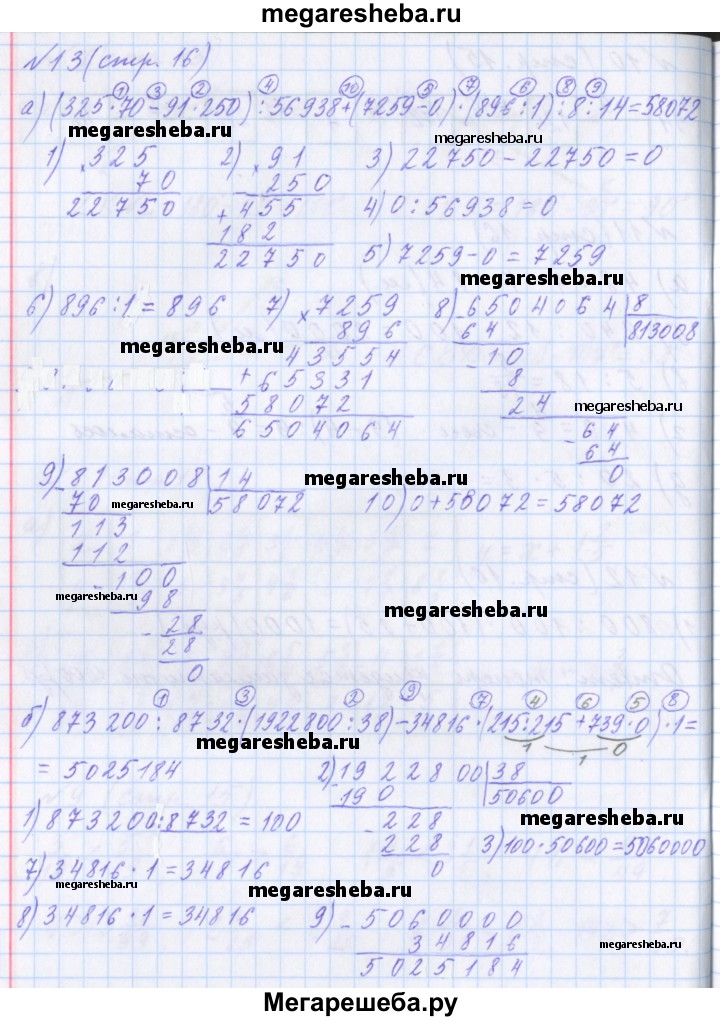 megaresheba.ru
№13 (стр. 16)
① ③ ② ④ ⑩ ⑤ ⑦ ⑥ ⑧ ⑨
а) (325·70-91·250):56938+(7259-0)·(896:1):8:14=58072
megaresheba.ru
megaresheba.ru
1) ×325
70
22750
2) ×91
250
+455
182
22750
3) 22750-22750=0
4) 0:56938=0
5) 7259-0=7259
megaresheba.ru
6) 896:1=896
megaresheba.ru
7) ×7259
896
43554
+65331
58072
6504064
8) -6504064|8
64
813008
-10
8
24
megaresheba.ru
-64
64
0
9) -813008|14
70
58072
megaresheba.ru
megaresheba.ru
113
112
-100
98
-28
28
0
megaresheba.ru
10) 0+58072=58072
megaresheba.ru
① ③ ② ⑨ ⑦ ④ ⑥ ⑤ ⑧
б) 873200:8732·(1922800:38)-34816·(215:215+739·0)·1=
1 1 0
megaresheba.ru
=5025184
2) -1922800|38
190
50600
-228
228
0
megaresheba.ru
1) 873200:8732=100
3) 100·50600=5060000
7) 34816·1=34816
megaresheba.ru
megaresheba.ru
8) 34816·1=34816
9) -5060000
34816
5025184
megaresheba.ru
Мегарешеба.ру